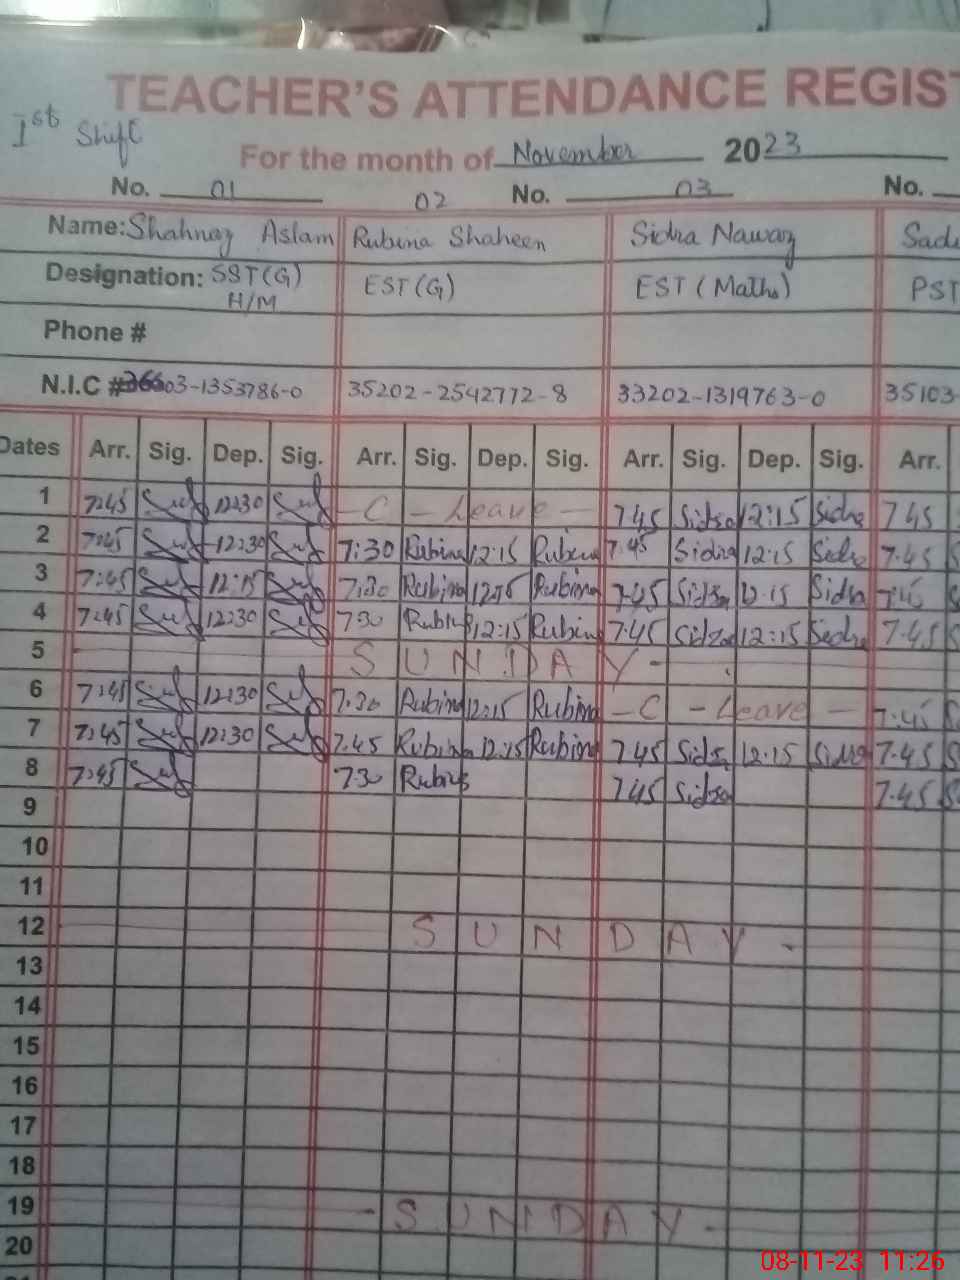 TEACHER'S ATTENDANCE REGIST
1st Shift
For the month of November 2023
No. 01 02 No. 03 No.
Name: Shahnaz Aslam Rubina Shaheen Sidra Nawaz
Designation: SST(G) H/M EST(G) EST (Maths) PST
Phone #
N.I.C # 36603-1353786-0 35202-2542772-8 33202-1319763-0 35103-
Dates Arr. Sig. Dep. Sig. Arr. Sig. Dep. Sig. Arr. Sig. Dep. Sig. Arr.
1 7:45 12:30 - C - Leave - 7 45 Sidra 12:15 Sidra 7 45
2 7:45 12:30 7:30 Rubina 12:15 Rubina 7.45 Sidra 12:15 Sidra 7.45
3 7:45 12:15 7:30 Rubina 12:15 Rubina 7.45 Sidra 12.15 Sidra 7:45
4 7:45 12:30 7 30 Rubina 12:15 Rubina 7.45 Sidra 12:15 Sidra 7.45
5 S U N D A Y -
6 7:45 12:30 7:30 Rubina 12:15 Rubina - C - Leave - 7:45
7 7:45 12:30 7.45 Rubina 12:15 Rubina 7 45 Sidra 12.15 Sidra 7.45
8 7:45 7:30 Rubina 7 45 Sidra 7.45
9
10
11
12 S U N D A Y -
13
14
15
16
17
18
19 - S U N D A Y -
20
08-11-23 11:26